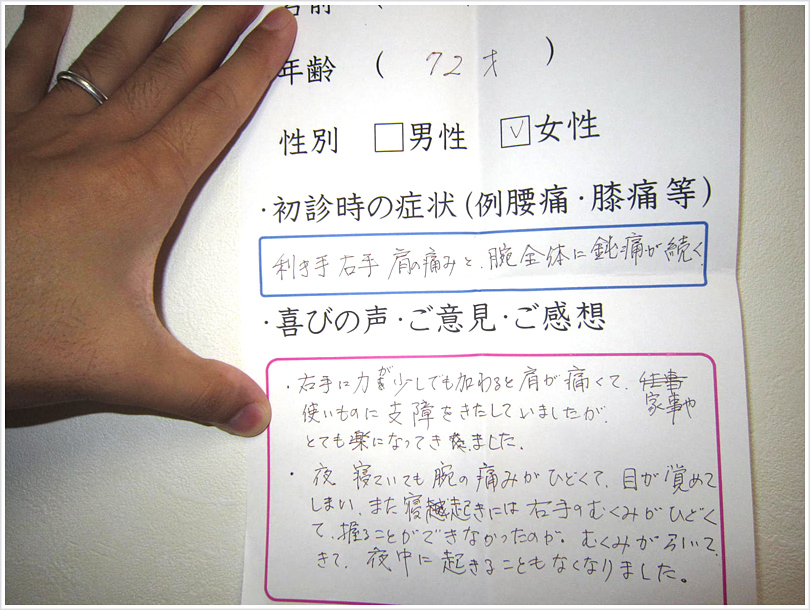 名前 (
年齢 ( 72才 )
性別 □男性 ☑女性
・初診時の症状(例腰痛・膝痛等)
利き手右手 肩の痛みと、腕全体に鈍痛が続く
・喜びの声・ご意見・ご感想
・右手に力が少しでも加わると肩が痛くて、家事や
使いものに支障をきたしていましたが、
とても楽になってきました。
・夜 寝ていても腕の痛みがひどくて、目が覚めて
しまい、また寝起きには右手のむくみがひどく
て、握ることができなかったのが。むくみが引いて
きて、夜中に起きることもなくなりました。